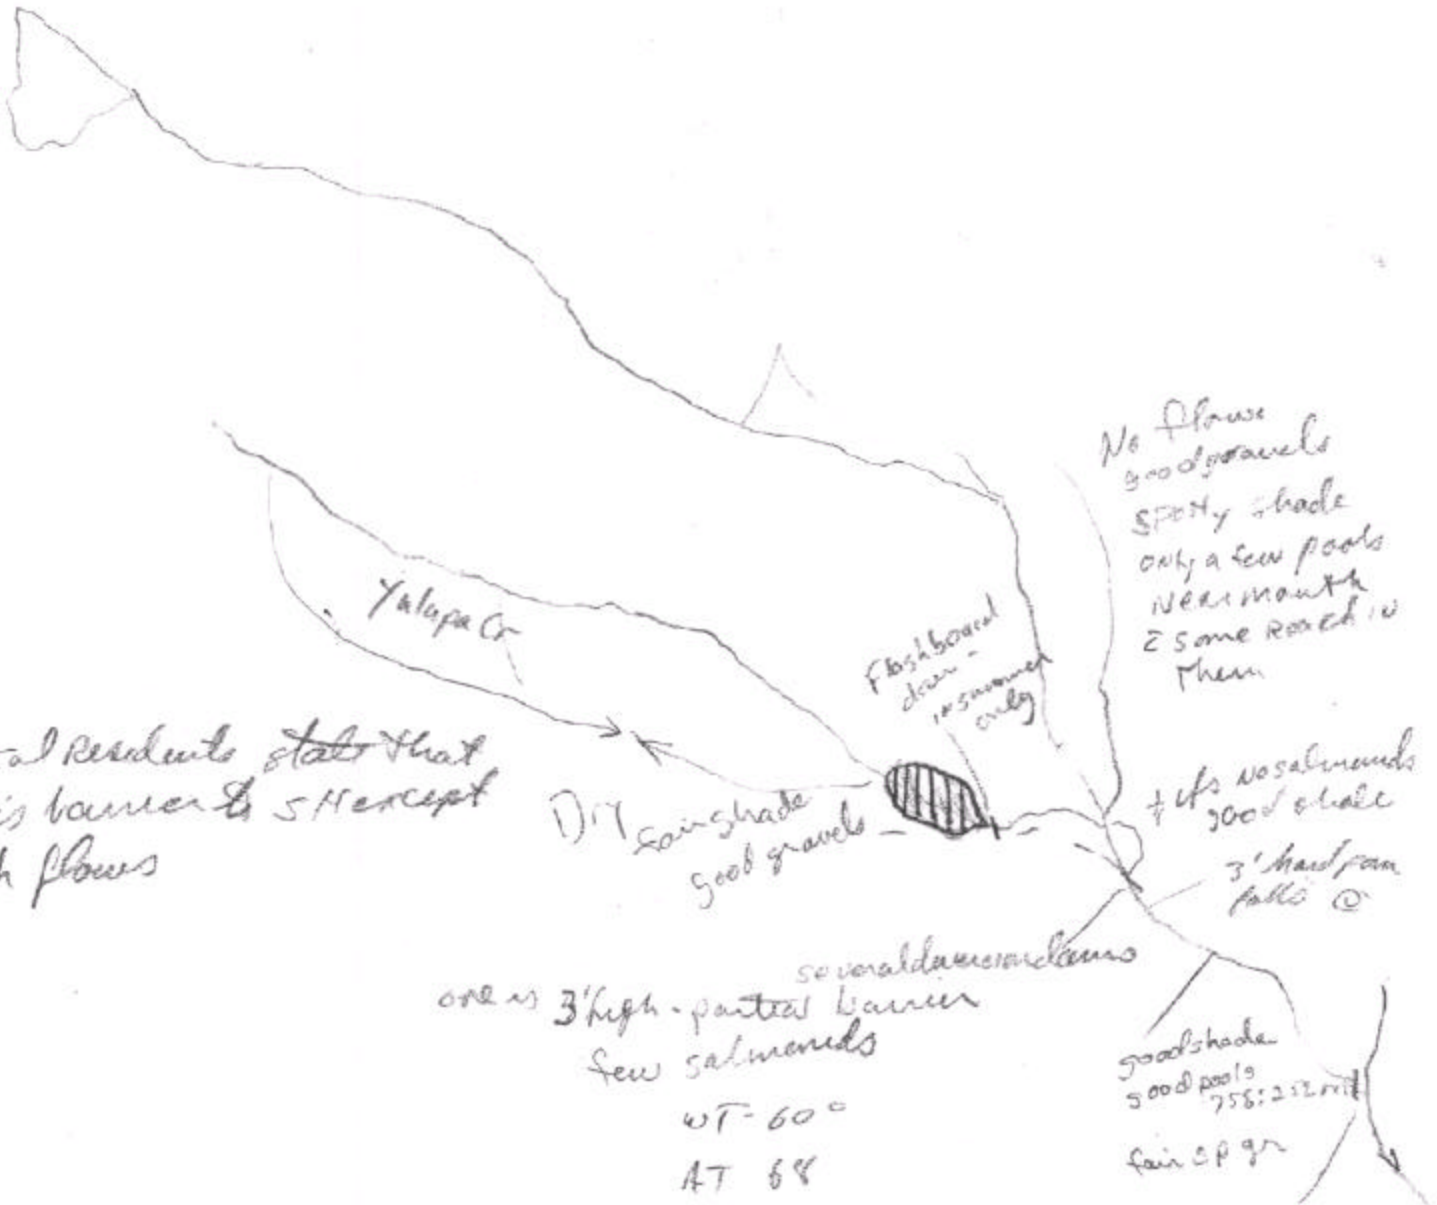 No flow
good gravels
spotty shade
only a few pools
near mouth
c̄ some Roach in
them
Yulupa Cr
Flashboard
dam -
in summer
only
al Residents state that
is barrier to SH except
h flows
Dry
fair shade
good gravels
cfs No salmonids
good shade
3' hard pan
falls @
several diversion dams
one is 3' high - partial barrier
few salmonids
WT - 60°
AT 68
good shade
good pools
fair sp gr